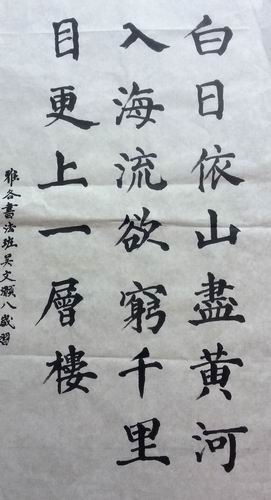 白日依山盡黄河
入海流欲窮千里
目更上一層樓
雅各書法班吴文灝八歲習